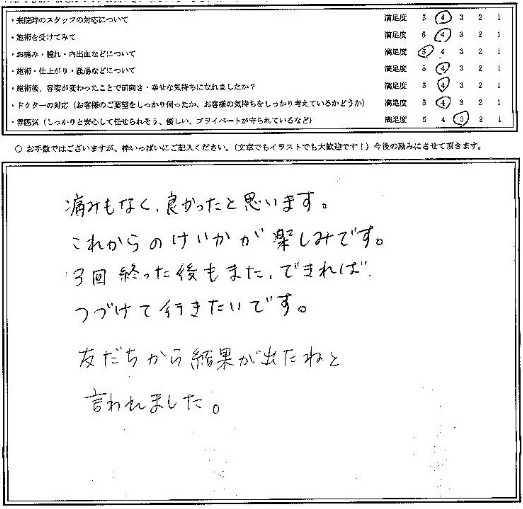 ・来院時のスタッフの対応について 満足度 5 4 3 2 1
・施術を受けてみて 満足度 5 4 3 2 1
・お痛み・腫れ・内出血などについて 満足度 5 4 3 2 1
・施術・仕上がり・経過などについて 満足度 5 4 3 2 1
・施術後、容姿が変わったことで前向き・幸せな気持ちになれましたか？ 満足度 5 4 3 2 1
・ドクターの対応（お客様のご要望をしっかり伺ったか、お客様の気持ちをしっかり考えているかどうか） 満足度 5 4 3 2 1
・雰囲気（しっかりと安心して任せられそう、優しい、プライベートが守られているなど） 満足度 5 4 3 2 1
○ お手数ではございますが、枠いっぱいにご記入ください。（文章でもイラストでも大歓迎です！）今後の励みにさせて頂きます。
痛みもなく、良かったと思います。
これからのけいかが楽しみです。
3回終った後もまた、できれば、
つづけて行きたいです。
友だちから結果が出たねと
言われました。